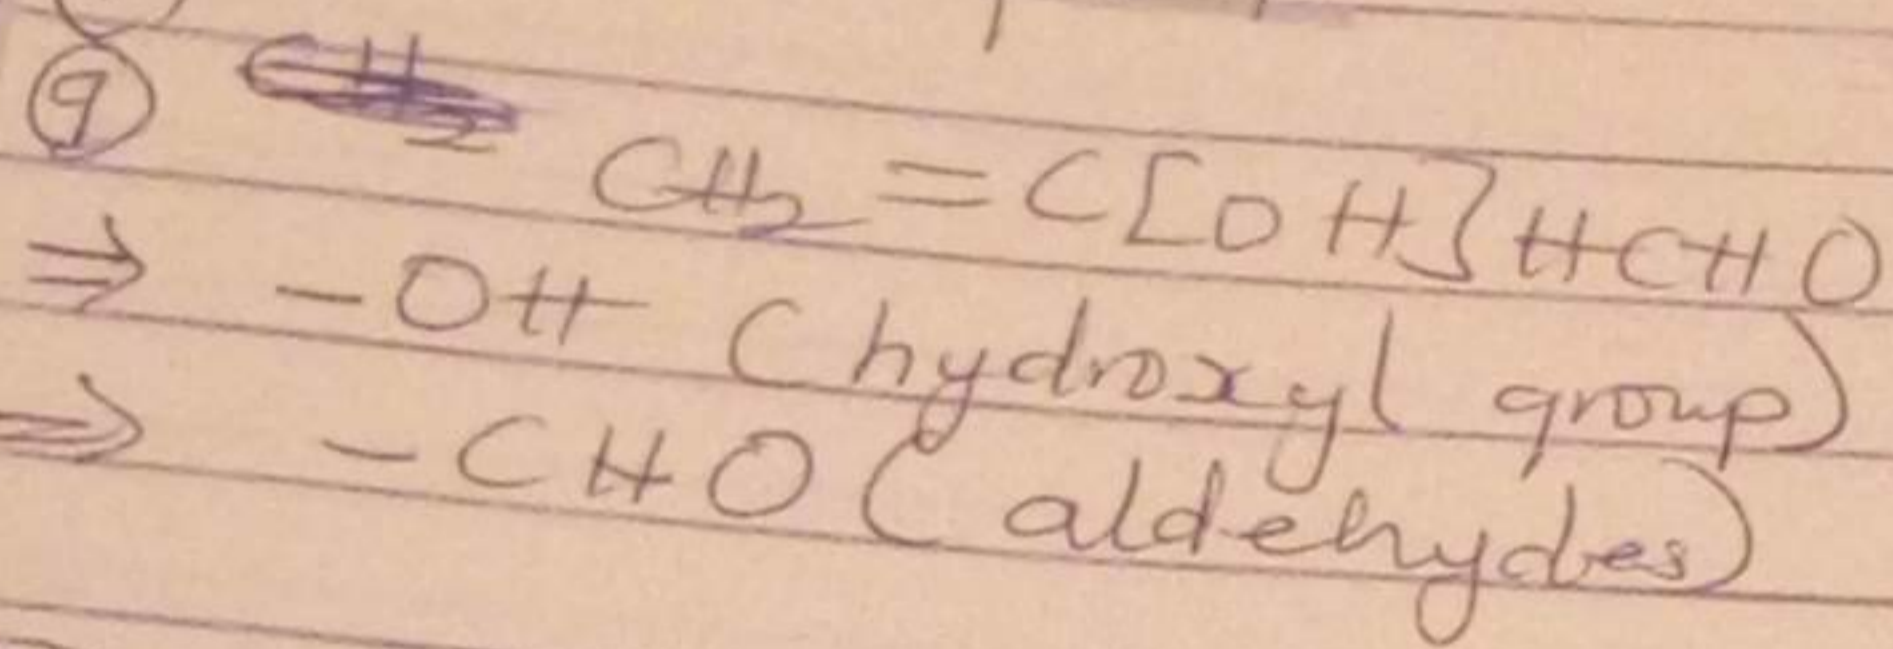 9 CH₂ CH₂ = C[OH]HCHO
⇒ -OH (hydroxyl group)
⇒ -CHO (aldehydes)